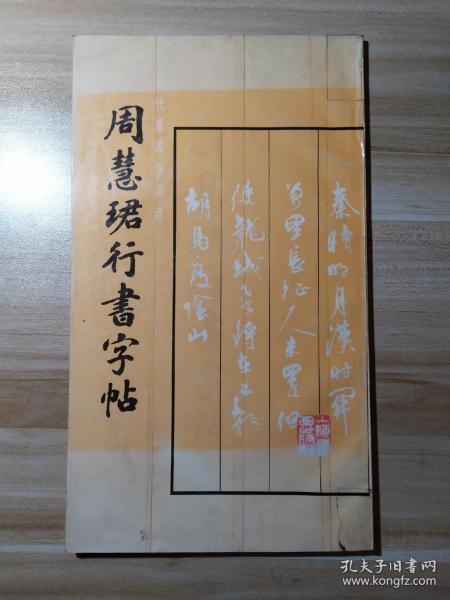 周慧珺行書字帖
代愛國詩詞選
秦時明月漢時關
萬里長征人未還但
使龍城飛將在不教
胡馬度陰山
孔夫子旧书网
www.kongfz.com